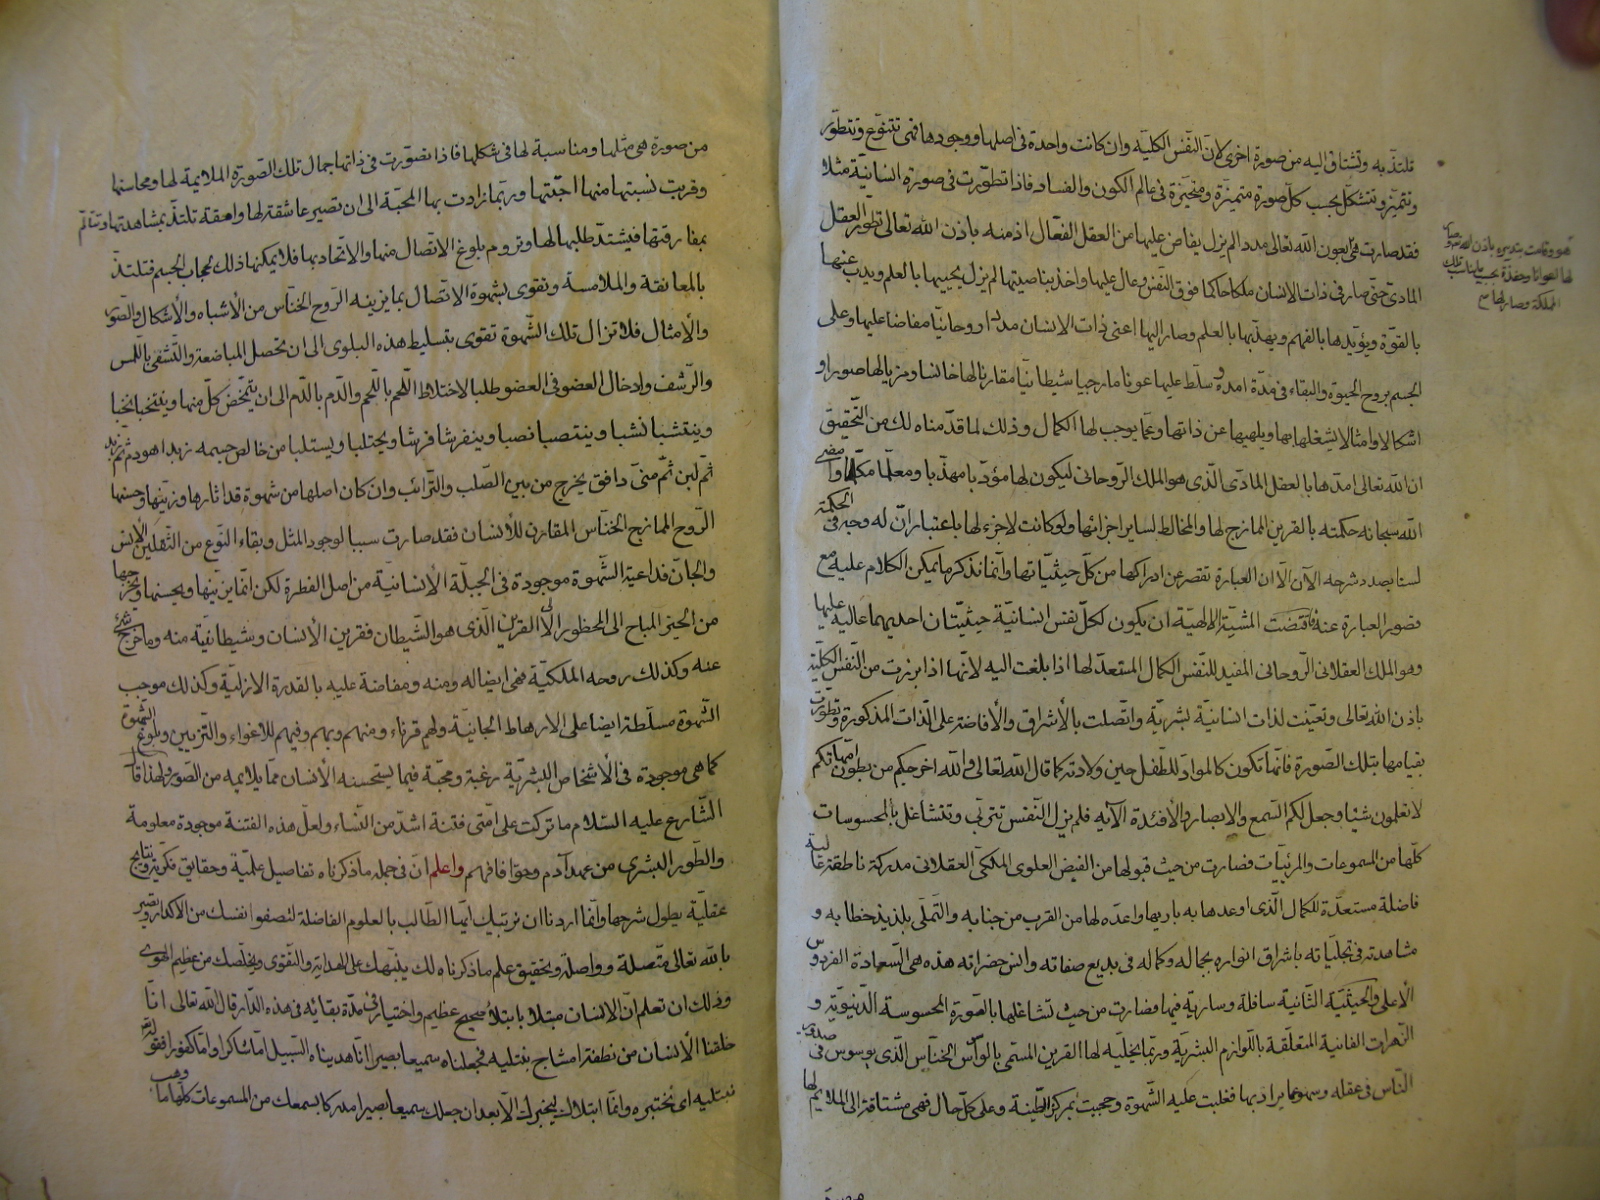 فتلتذ به وتشتاق اليه من صورة اخرى لان النفس الكلية وان كانت واحدة في اصلها ووجودها فهي تتنوع وتتطور
وتتميز وتتشكل بحسب كل صورة متميزة ومتحيزة في عالم الكون والفساد فاذا تطورت في صورة انسانية مثلا
فقد صارت بعون الله تعالى مدد لم يزل يفاض عليها من العقل الفعال اذ منه باذن الله تعالى تطور العقل
المادي حتى صار في ذات الانسان ملكا حاكما فوق النفس وعال عليها واخذ بناصيتها لم يزل يحييها بالعلم ويذب عنها
بالقوة ويؤيدها بالفهم ويهذبها بالعلم وصار اليها اعني ذات الانسان مددا روحانيا مفاضا عليها وعلى
الجسم بروح الحيوة والبقاء في مدة امده وسلط عليها عونا مارجيا شيطانيا مقارنا لها خانسا ومزيا لها صورا و
اشكالا وامثالا يشغلها بها ويلهيها عن ذاتها وعما يوجب لها الكمال وذلك لما قدمناه لك من التحقيق
ان الله تعالى امدها بالعقل المادي الذي هو الملك الروحاني ليكون لها مؤدبا مهذبا ومعلما مكملا وامضى
الله سبحانه حكمته بالقرين الممازج لها والمخالط لساير اجزائها ولو كانت لا جزء لها باعتبار ان له وجه في الحكمة
لسنا بصدد شرحه الآن الا ان العبارة تقصر عن ادراكها من كل حيثياتها وانما نذكر ما يمكن الكلام عليه مع
قصور العبارة عنه فاقتضت المشية الالهية ان يكون لكل نفس انسانية حيثيتان احديهما عالية عليها
وهو الملك العقلاني الروحاني المفيد للنفس الكمال المستعد لها اذا بلغت اليه لانها اذا برزت من النفس الكلية
باذن الله تعالى وتعينت لذات انسانية بشرية واتصلت بالاشراق والافاضة على الذات المذكورة وتطورت
بقيامها بتلك الصورة فانها تكون كالمواد للطفل حين ولادته كما قال الله تعالى والله اخرجكم من بطون امهاتكم
لا تعلمون شيئا وجعل لكم السمع والابصار والافئدة الآيه فلم يزل النفس تترقى وتتشاغل بالمحسوسات
كلها من المسموعات والمرئيات فصارت من حيث قبولها من الفيض العلوي الملكي العقلاني مدركة ناطقة عالية
فاضلة مستعدة للكمال الذي اوعدها به باريها واعده لها من القرب من جنابه والتملي بلذيذ خطابه و
مشاهدته في تجلياته باشراق انواره بجماله وكماله في بديع صفاته وانس حضراته هذه هي السعادة الفردوس
الاعلى والحيثية الثانية سافلة وسارية فيها فصارت من حيث تشاغلها بالصورة المحسوسة الدنيوية و
الزهرات الفانية المتعلقة باللوازم البشرية وربما يخليه لها القرين المسمى بالوسواس الخناس الذي يوسوس في صدور
الناس في عقله وسهو عما يراد بها فغلبت عليه الشهوة وحجبت بمركز الطينة وعلى كل حال فهي مشتاقة الى الملايم لها
هو وقامت بتدبيره باذن الله
لها اعوانا وحفدة
المملكة وصار لها
من صورة هي مثلها ومناسبة لها في شكلها فاذا تصورت في ذاتها جمال تلك الصورة الملايمة لها ومحاسنها
وقربت نسبتها منها احبتها وربما زادت بها المحبة الى ان تصير عاشقة لها وامقة تلتذ بمشاهدتها وتتألم
بمفارقتها فيشتد طلبها لها وتروم بلوغ الاتصال منها والاتحاد بها فلا يمكنها ذلك لحجاب الجسم فتلتذ
بالمعانقة والملامسة وتقوى لشهوة الاتصال بما يزينه الروح الخناس من الأشباه والأشكال والصور
والأمثال فلا تزال تلك الشهوة تقوى بتسليط هذه البلوى الى ان تحصل المباضعة والتشفي باللمس
والرشف وادخال العضو في العضو طلبا لاختلاط اللحم باللحم والدم بالدم الى ان يتمخض كل منها وينتخبا نخبا
وينتشبا نشبا وينتصبا نصبا وينفرشا فرشا ويحتلبا ويستلبا من خالص جسمه زبدا هو دم ثم زبد
ثم لبن ثم مني دافق يخرج من بين الصلب والترائب وان كان اصلها من شهوة قد اثارها وزينها وحسنها
الروح الممازج الخناس المقارن للأنسان فقد صارت سببا لوجود المثل وبقاء النوع من الثقلين الانس
والجان فداعية الشهوة موجودة في الجبلة الانسانية من اصل الفطرة لكن انما يزينها ويحسنها ويخرجها
من الحيز المباح الى المحظور الا القرين الذي هو الشيطان فقرين الأنسان وشيطانيته منه وما خرج شئ
عنه وكذلك روحه الملكية فهي ايضا له ومنه ومفاضة عليه بالقدرة الازلية وكذلك موجب
الشهوة مسلطة ايضا على الارهاط الجانية ولهم قرناء ومنهم وبهم وفيهم للاغواء والتزيين وبلوغ الشهوة
كما هي موجودة في الأشخاص البشرية رغبة ومحبة فيما يستحسنه الأنسان مما يلايمه من الصور ولهذا قال
الشارع عليه السلام ما تركت على امتي فتنة اشد من النساء ولعل هذه الفتنة موجودة معلومة
والطور البشري من عهد آدم وحوا فافهم واعلم ان في جملة ما ذكرناه تفاصيل علمية وحقايق فكرية ونتايج
عقلية يطول شرحها وانما اردنا ان نرتبك ايها الطالب بالعلوم الفاضلة لتصفو انفسك من الأكدار وتصير
بالله تعالى متصلة وواصلة وبحقيق علم ما ذكرناه لك ينبهك على الهداية والتقوى ويخلصك من عظيم الهوى
وذلك ان تعلم ان الانسان مبتلا بابتلاء صحيح عظيم واختيار في مدة بقائه في هذه الدار قال الله تعالى انا
خلقنا الأنسان من نطفة امشاج نبتليه فجعلناه سميعا بصيرا انا هديناه السبيل اما شاكرا واما كفورا فقوله
نبتليه اي نختبره وانما ابتلاك ليخبرك الا بعد ان جعلك سميعا بصيرا مدركا بسمعك من المسموعات كلها ما وهب